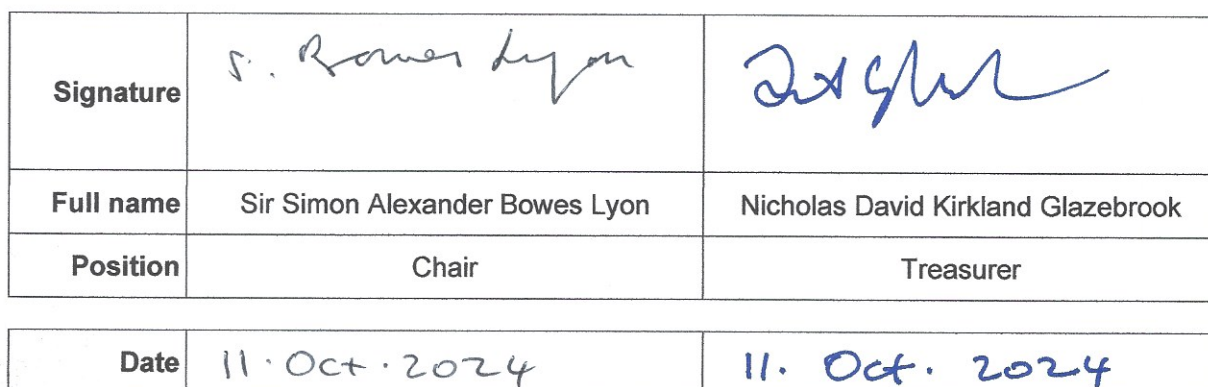 Signature S. Bowes Lyon
Full name Sir Simon Alexander Bowes Lyon Nicholas David Kirkland Glazebrook
Position Chair Treasurer
Date 11. Oct. 2024 11. Oct. 2024